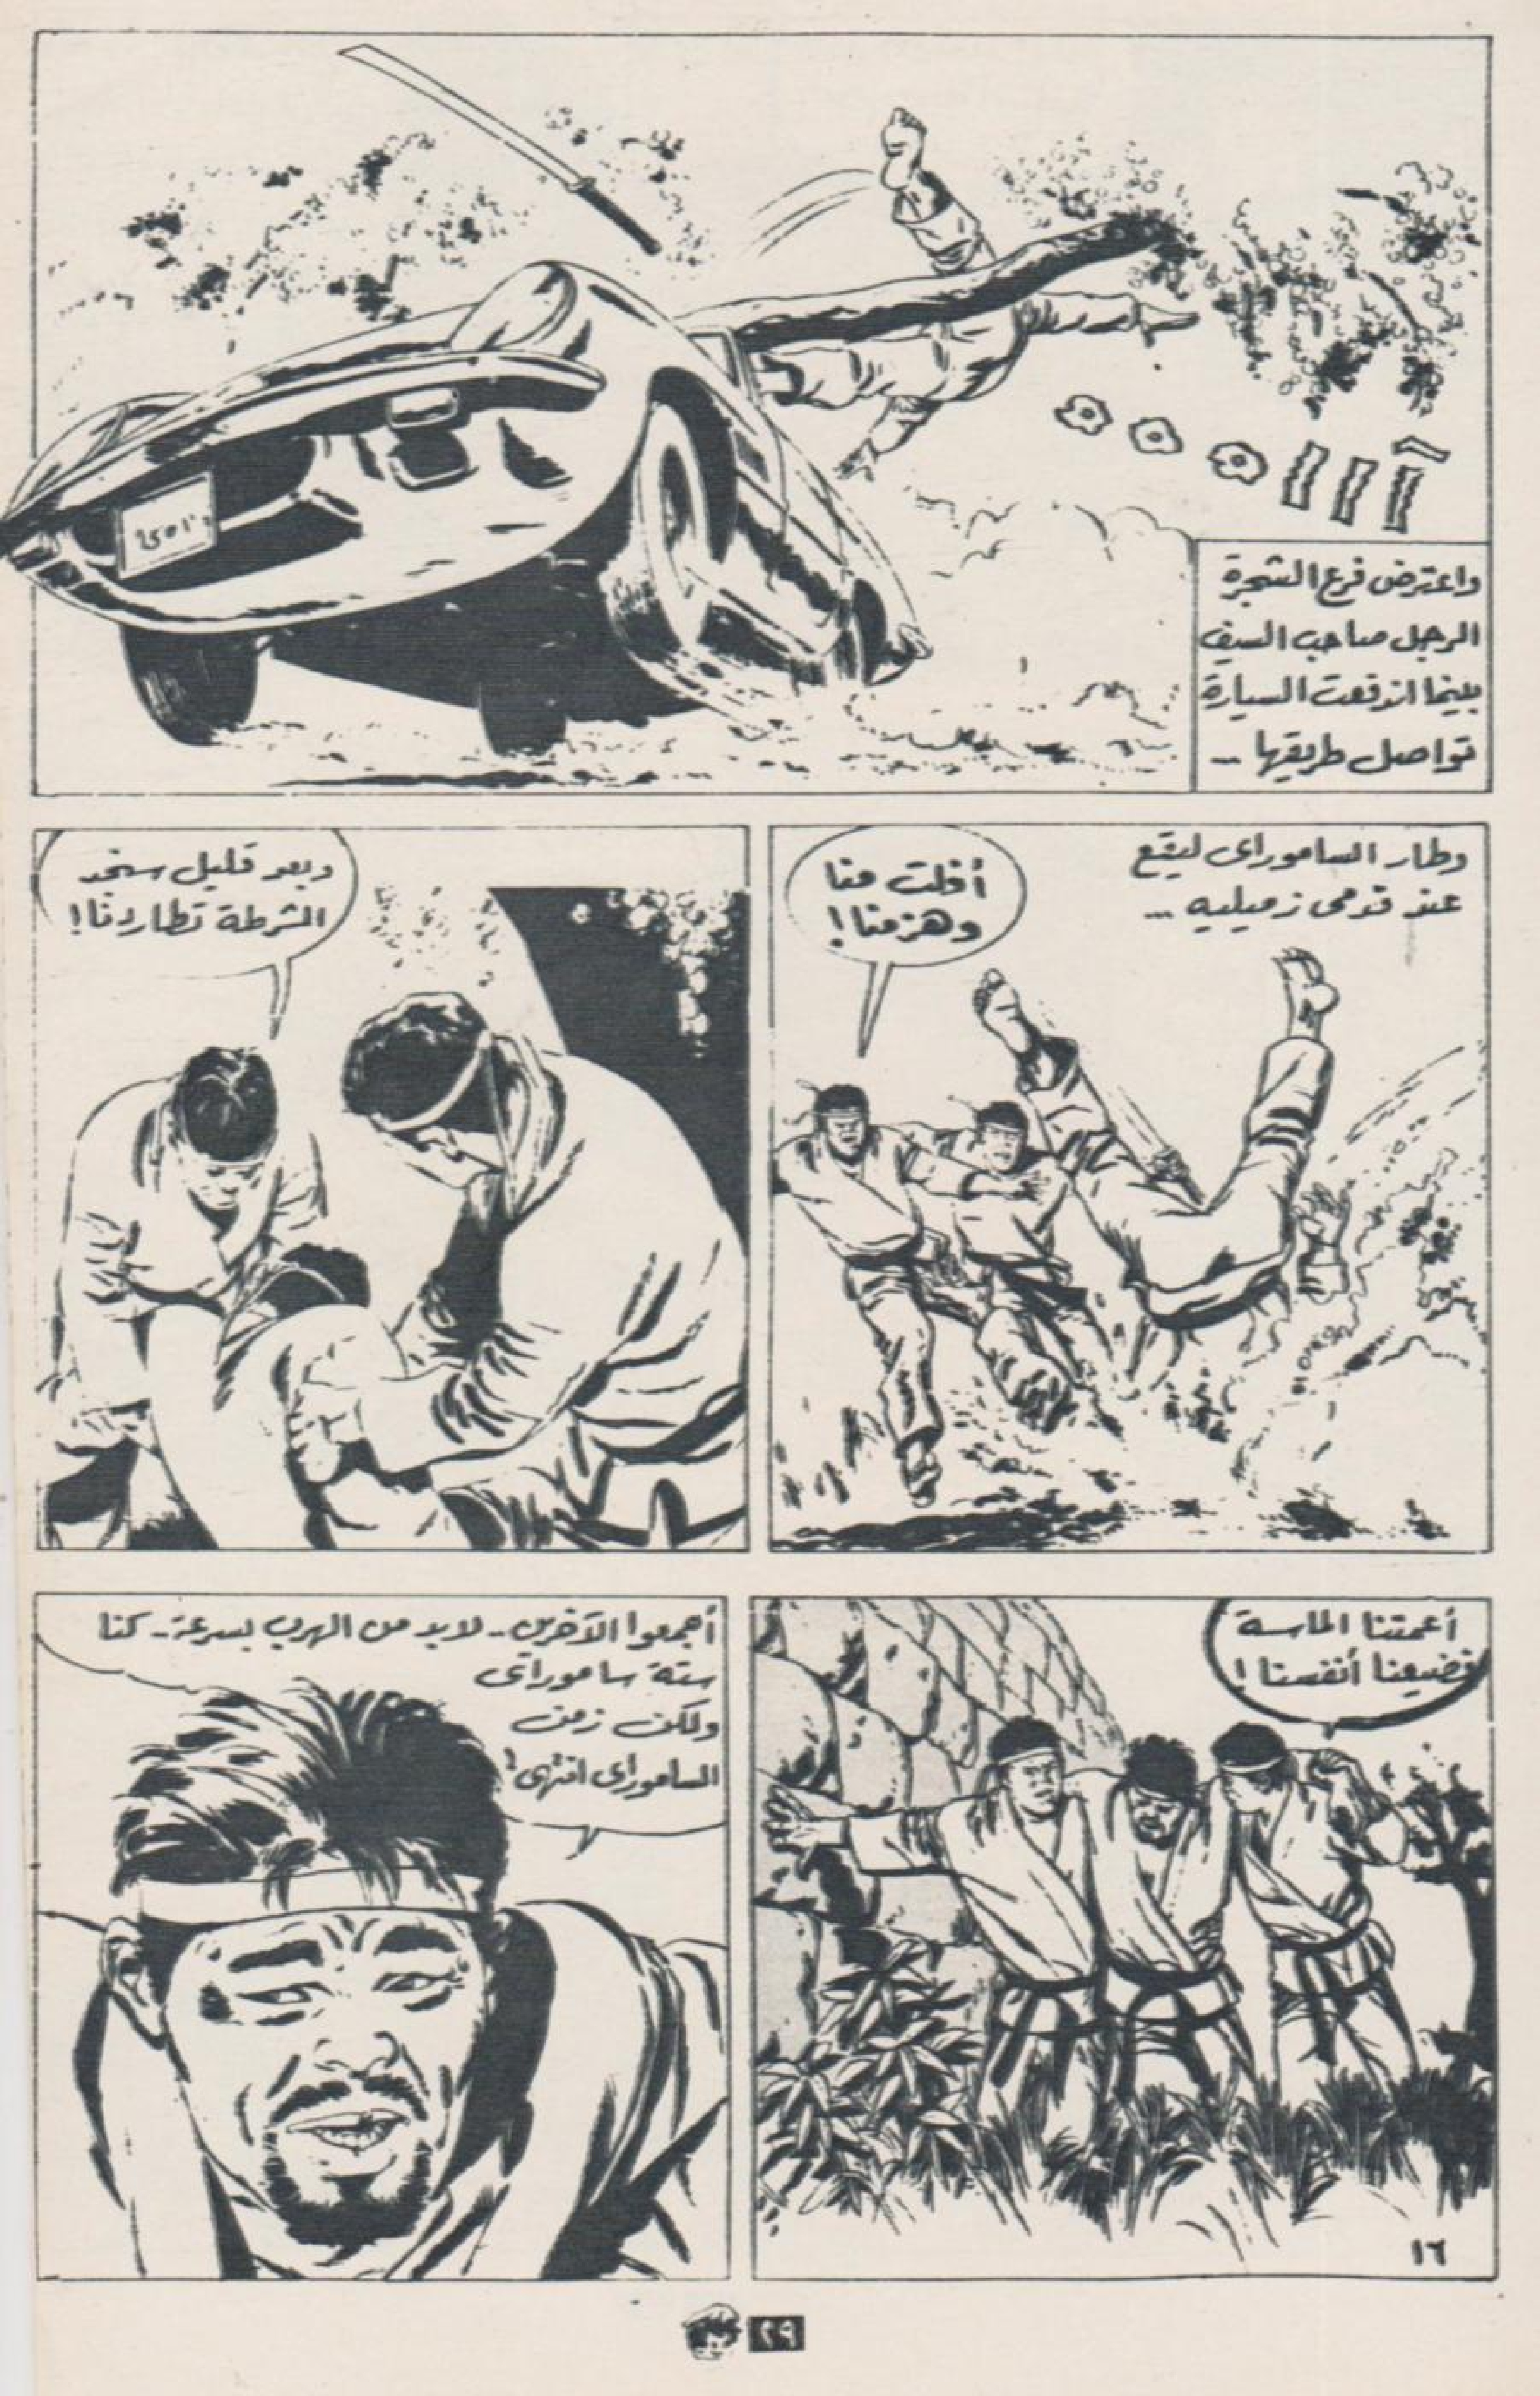 آااه ه ه
واعترض فرع الشجرة
الرجل صاحب السيف
بينما اندفعت السيارة
تواصل طريقها ..
وطار الساموراى ليقع
عند قدمى زميليه ..
أفلت منا
وهزمنا!
وبعد قليل ستجد
الشرطة تطاردنا!
أعمتنا الماسة
فضيعنا أنفسنا!
أجمعوا الآخرين .. لابد من الهرب بسرعة .. كنا
ستة ساموراى
ولكن زمن
الساموراى انتهى!
١٦
٢٩